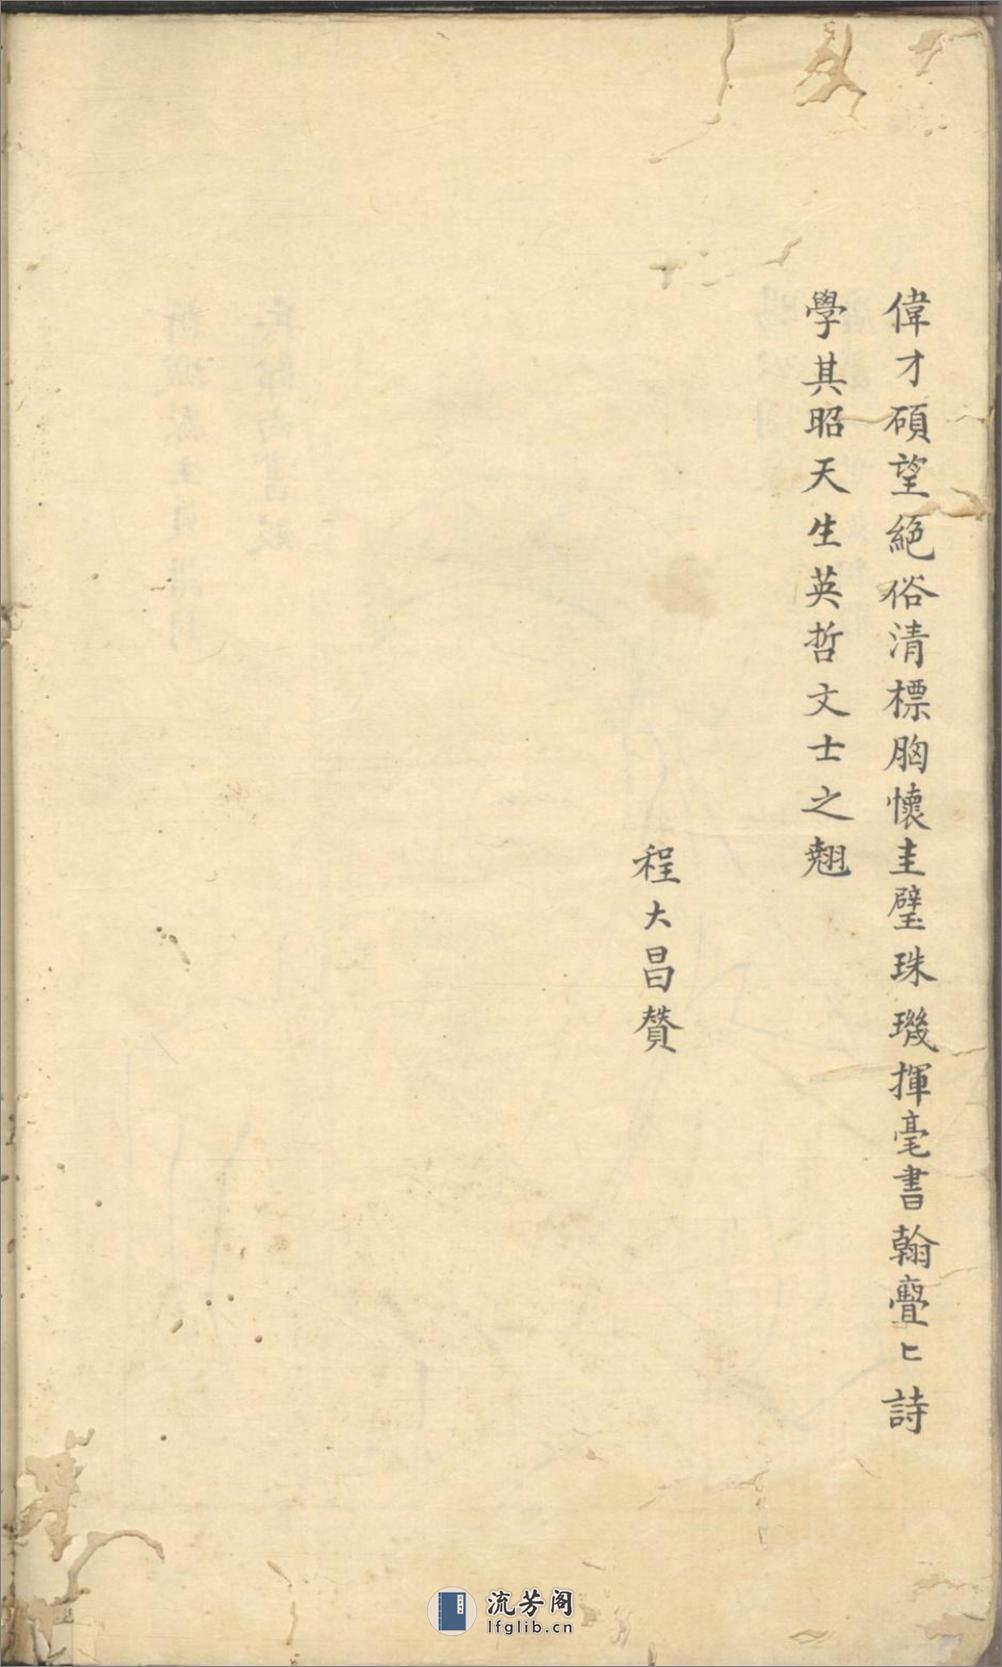 偉才碩望絕俗清標胸懷圭璧珠璣揮毫書翰亹匕詩
學其昭天生英哲文士之翹
程大昌贊
流芳阁
lfglib.cn